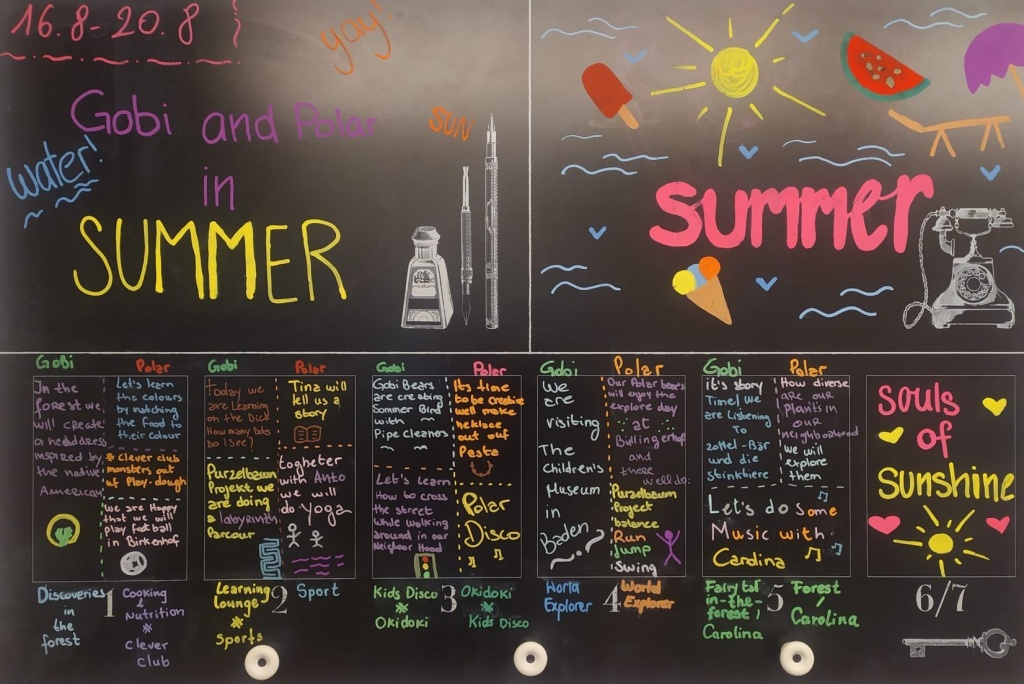 16.8-20.8
yay!
Gobi and Polar
water!
SUN
in
SUMMER
summer
Gobi
Polar
In the
forest we
will create
a headdress
inspired by
the native
American
Let's learn
the colours
by matching
the food to
their colour
* Clever club
monsters out
of Play-dough
we are Happy
that we will
play Football
in Birkenhof
Discoveries
in
the
forest
1
Cooking
&
Nutrition
*
clever
club
Gobi
Polar
Today we
are Learning
on the Dice
How many Dots
Do I see?
Purzelbaum
Projekt we
are doing
a labyrinth
Parcour
Tina will
tell us a
story
togheter
with Anto
we will
do yoga
Learning
lounge
*
Sports
2
Sport
Gobi
Polar
Gobi Bears
are creating
Sommer Bird
with
Pipe cleaners
Let's learn
How to cross
the street
while walking
around in our
Neighbor Hood
Its time
to be creative
well make
neklace
out ouf
Pasta
Polar
Disco
Kids Disco
*
Okidoki
3
Okidoki
*
Kids Disco
Gobi
Polar
We
are
visiting
The
Children's
Museum
in
Baden
Our Polar bear's
will enjoy the
explore day
at
Bidlingerhof
and
there
we'll do:
Purzelbaum
Project
balance
Run
Jump
Swing
World
Explorer
4
World
Explorer
Gobi
Polar
it's story
Time! we
are Listening
To
zottel-Bär
und die
stinktiere
How diverse
are our
plants in
our
neighborhood
we will
explore
them
Let's do some
Music with
Carolina
Fairytal
in-the-
forest /
Carolina
5
Forest
/
Carolina
souls
of
Sunshine
6/7